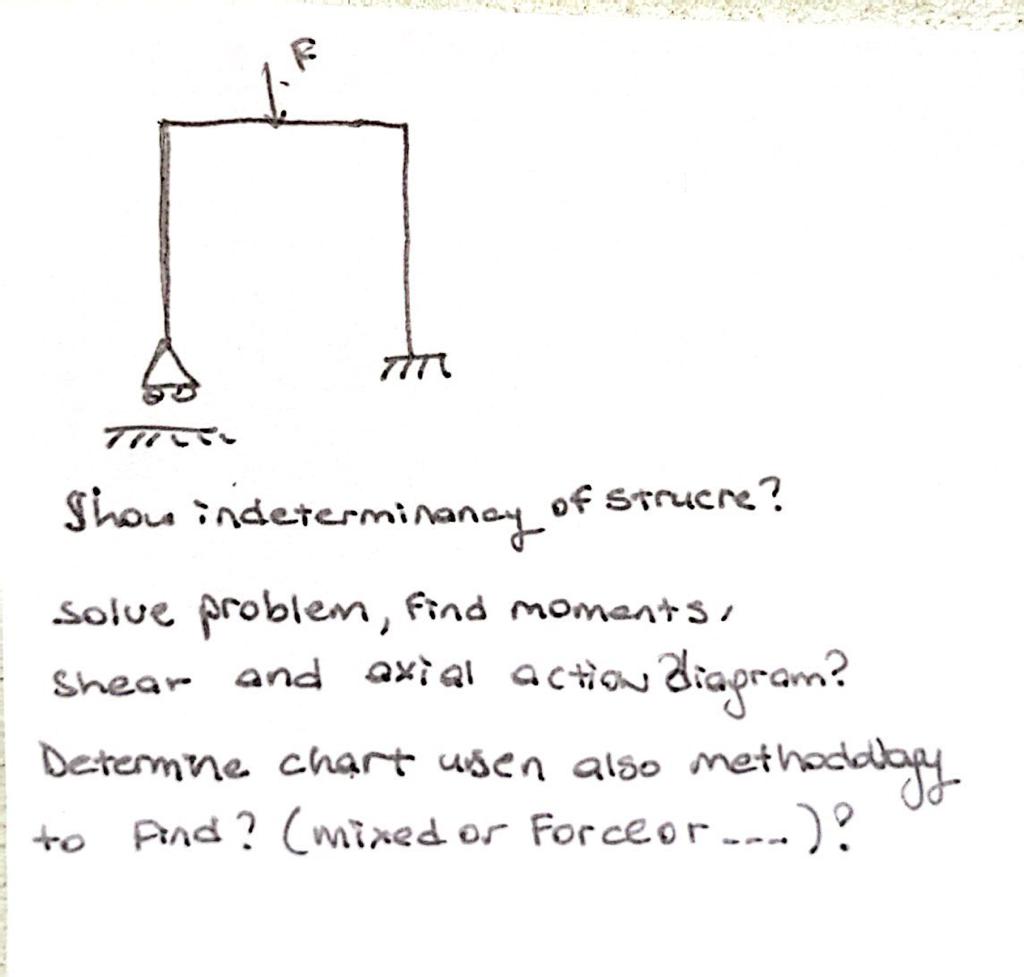 F
Show indeterminancy of strucre?
solve problem, find moments,
shear and axial action diagram?
Determine chart usen also methodology
to find? (mixed or Force or ----)?